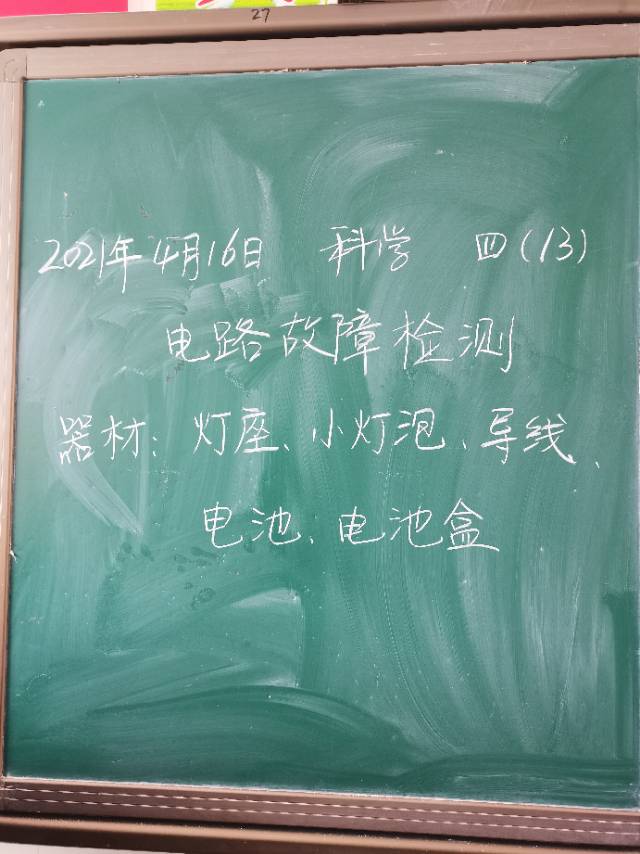 27
2021年4月16日 科学 四(13)
电路故障检测
器材：灯座、小灯泡、导线、
电池、电池盒